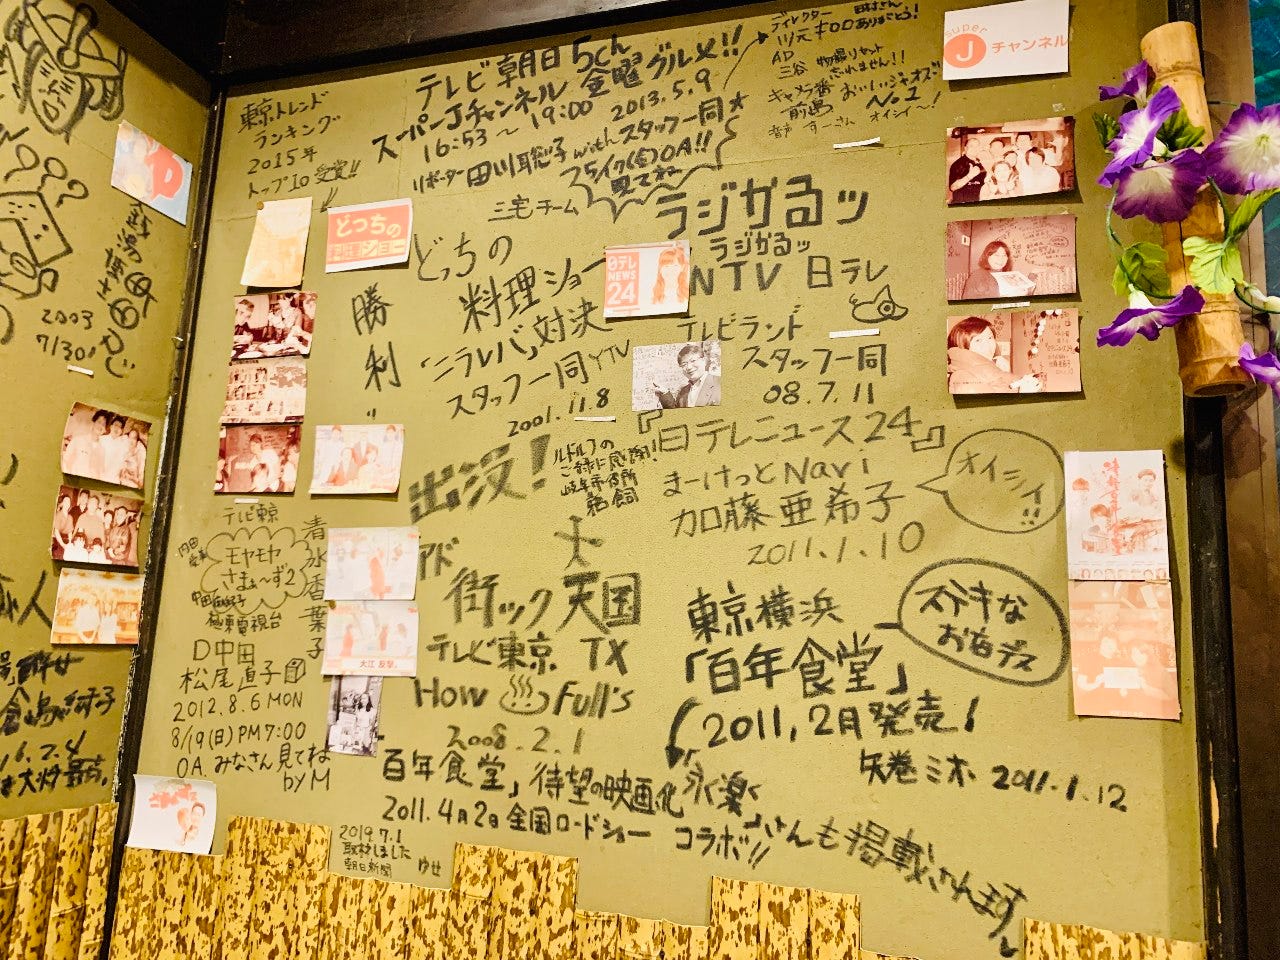 東京トレンド
ランキング
2015年
トップ10受賞!!
テレビ朝日 5ch
スーパーJチャンネル 金曜グルメ!!
16:53～19:00 2013.5.9
リポーター 田川聡子 withスタッフ一同★
5/17(金)OA!!
見てね
三宅チーム
ディレクター
AD
三谷
キャメラ番
前島 おいしいジャオズ!
No.1
音声 すーさん オイシイ～!
super
J チャンネル
どっちの
料理ショー
どっちの
料理ショー
「ニラレバ」対決
スタッフ一同 YTV
2001.11.8
勝利!!
ラジかるッ
ラジかるッ
NTV 日テレ
テレビランド
スタッフ一同
08.7.11
日テレ
NEWS
24
『日テレニュース24』
まーけっとNavi
加藤亜希子
2011.1.10
オイシイ!!
出没!
アド
街ック天国
テレビ東京 TX
How Full's
2008.2.1
ルドルフの
ご縁に感謝!
岐阜市役所
鵜飼
東京横浜
「百年食堂」
2011.2月発売!
ステキな
お店デス
矢巻ミホ 2011.1.12
百年食堂」待望の映画化
2011.4月2日全国ロードショー コラボ!!
永楽さんも掲載されてます
テレビ東京
モヤモヤ
さまぁ～ず2
内田
極東電視台
D中田
松尾直子
2012.8.6 MON
8/19(日)PM7:00
OA. みなさん見てね
by M
清水香葉子
大江
2019.7.1
取材しました
朝日新聞 ゆせ
銭湯博士
2003
7/30